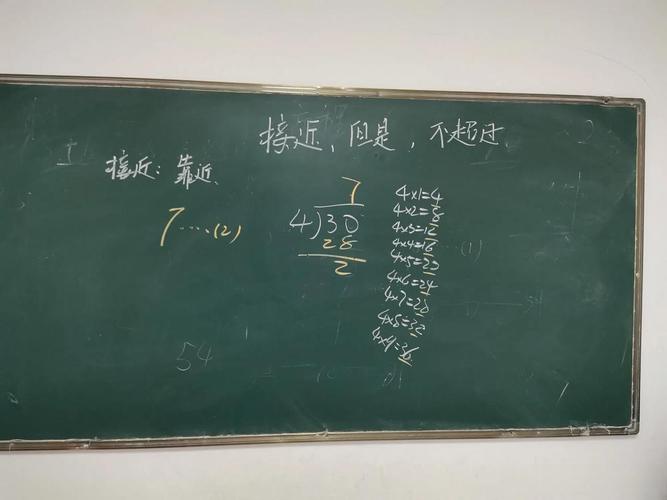 接近、但是，不超过
接近：靠近、
7
4)30
28
2
7……(2)
4×1=4
4×2=8
4×3=12
4×4=16
4×5=20
4×6=24
4×7=28
4×8=32
4×9=36
(1)
54
2